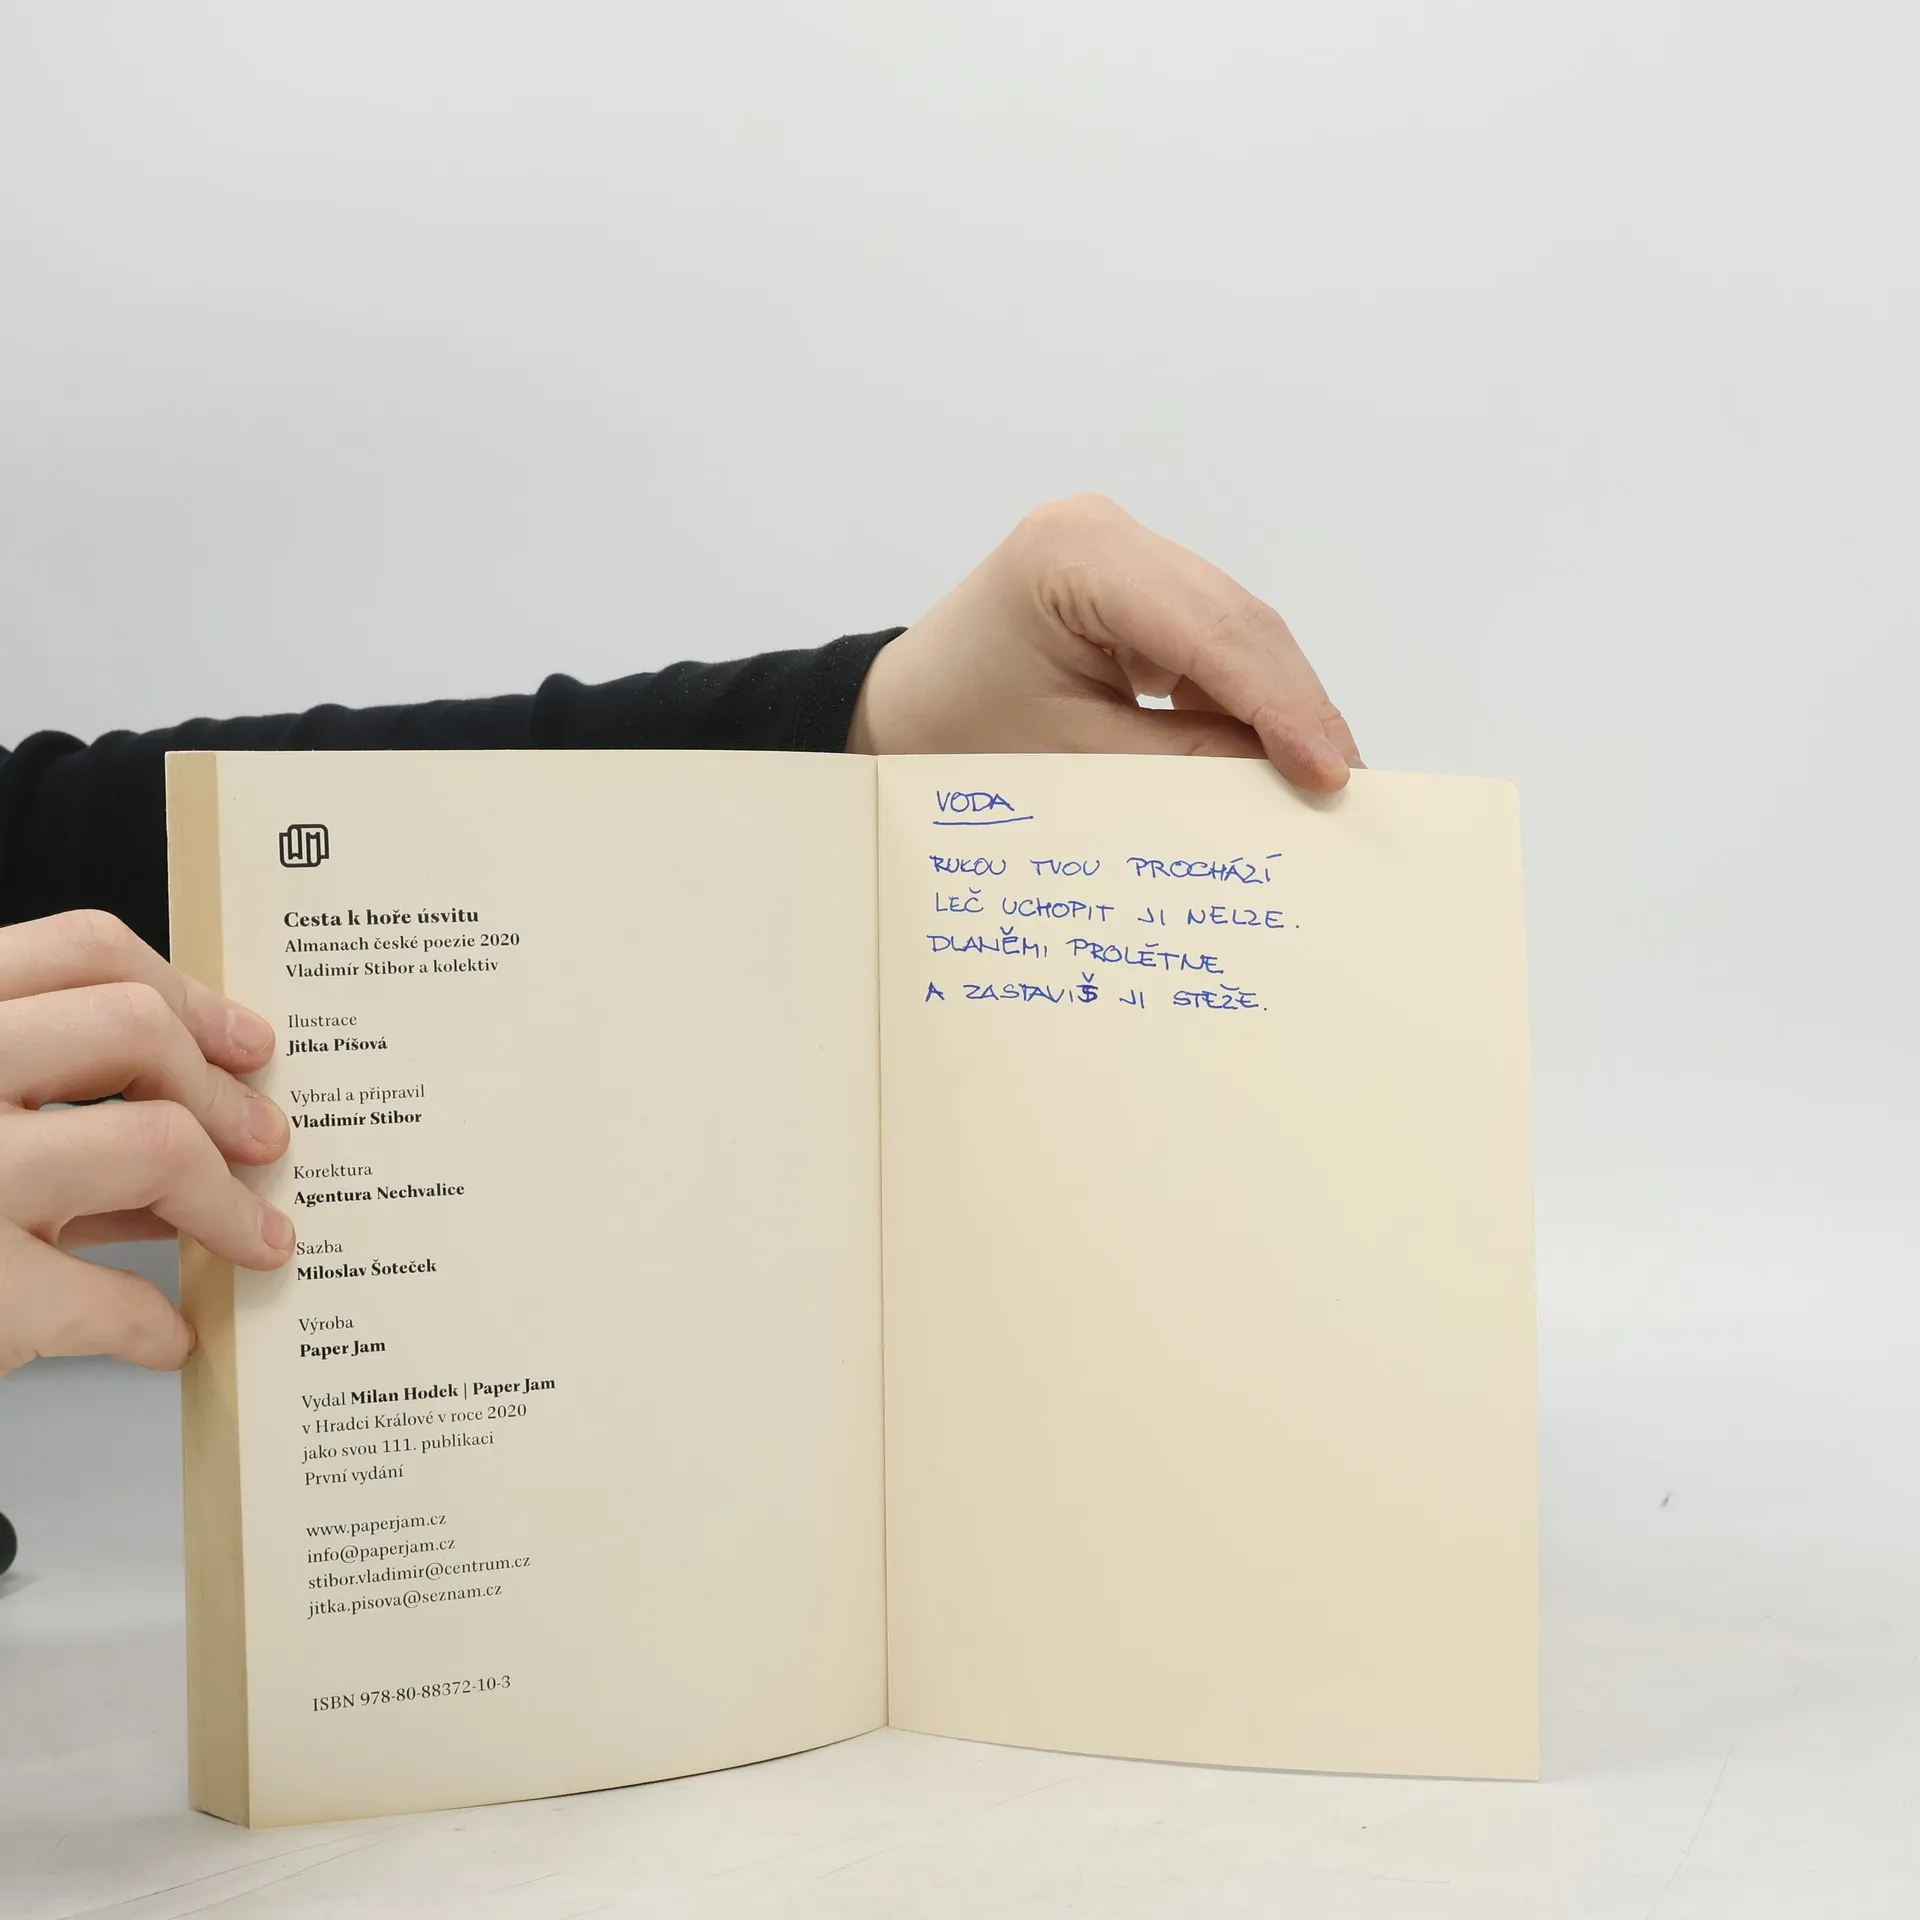 Cesta k hoře úsvitu
Almanach české poezie 2020
Vladimír Stibor a kolektiv
Ilustrace
Jitka Píšová
Vybral a připravil
Vladimír Stibor
Korektura
Agentura Nechvalice
Sazba
Miloslav Šoteček
Výroba
Paper Jam
Vydal Milan Hodek | Paper Jam
v Hradci Králové v roce 2020
jako svou 111. publikaci
První vydání
www.paperjam.cz
info@paperjam.cz
stibor.vladimir@centrum.cz
jitka.pisova@seznam.cz
ISBN 978-80-88372-10-3
VODA
RUKOU TVOU PROCHÁZÍ
LEČ UCHOPIT JI NELZE.
DLANĚMI PROLÉTNE
A ZASTAVÍŠ JI STĚŽE.